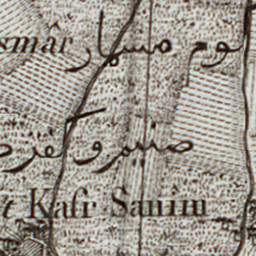 smâr
كوم مسمار
صنيم و كفر ص
t Kafr Sanîm